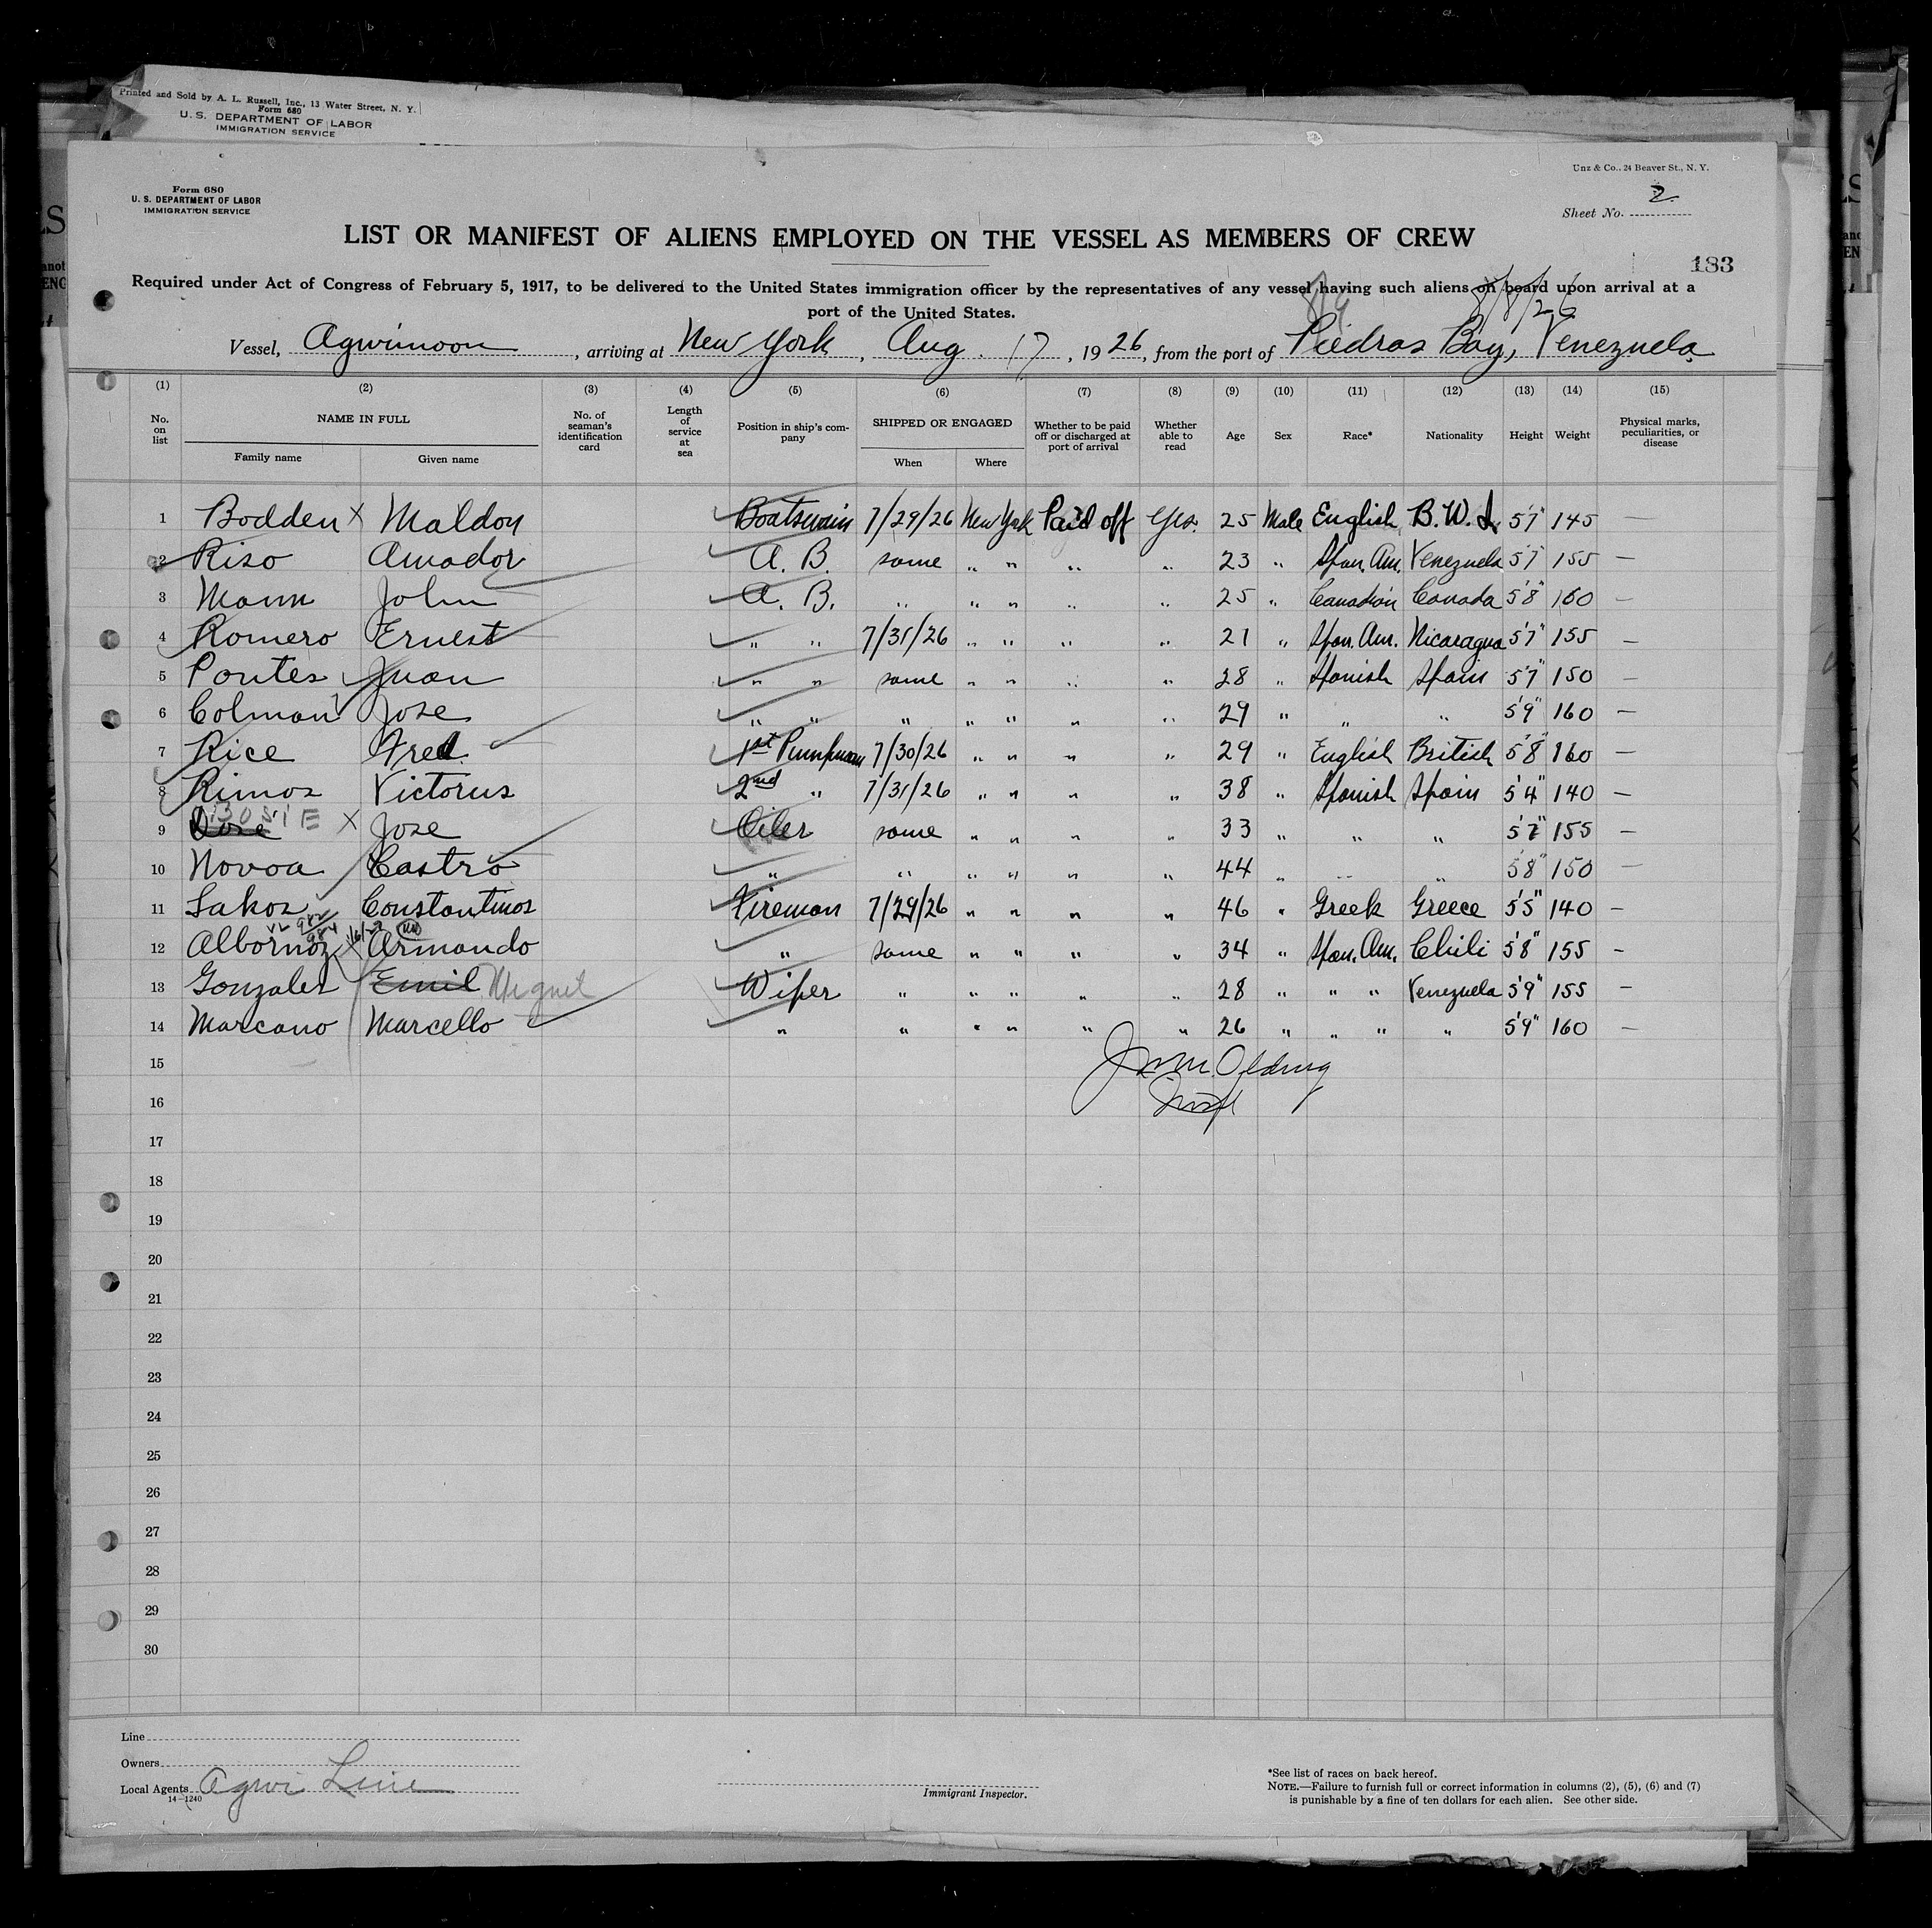 Printed and Sold by A. L. Russell, Inc., 13 Water Street, N. Y.
Form 680
U. S. DEPARTMENT OF LABOR
IMMIGRATION SERVICE
Unz & Co., 24 Beaver St., N. Y.
Form 680
U. S. DEPARTMENT OF LABOR
IMMIGRATION SERVICE
Sheet No. 2
LIST OR MANIFEST OF ALIENS EMPLOYED ON THE VESSEL AS MEMBERS OF CREW
183
Required under Act of Congress of February 5, 1917, to be delivered to the United States immigration officer by the representatives of any vessel having such aliens on board upon arrival at a
port of the United States.
8/8/26
Vessel, Agwimoon, arriving at New York, Aug. 17, 1926, from the port of Piedras Bay, Venezuela
(1) (2) (3) (4) (5) (6) (7) (8) (9) (10) (11) (12) (13) (14) (15)
No. on list NAME IN FULL Family name Given name No. of seaman's identification card Length of service at sea Position in ship's company SHIPPED OR ENGAGED When Where Whether to be paid off or discharged at port of arrival Whether able to read Age Sex Race* Nationality Height Weight Physical marks, peculiarities, or disease
1 Bodden x Maldon Boatswain 7/29/26 New York Paid off Yes. 25 Male English B. W. I. 5'7" 145 —
2 Riso Amador A. B. same " " " " 23 " Span. Am. Venezuela 5'7" 155 —
3 Mann John A. B. " " " " " 25 " Canadian Canada 5'8" 160 —
4 Romero Ernest " " 7/31/26 " " " " 21 " Span. Am. Nicaragua 5'7" 155 —
5 Pontes Juan " " same " " " " 28 " Spanish Spain 5'7" 150 —
6 Colman Jose " " " " " " " 29 " " " 5'9" 160 —
7 Rice Fred. 1st Pumpman 7/30/26 " " " " 29 " English British 5'8" 160 —
8 Rimos Victorus 2nd " 7/31/26 " " " " 38 " Spanish Spain 5'4" 140 —
9 x Jose Oiler same " " " " 33 " " " 5'7" 155 —
10 Novoa Castro " " " " " " 44 " " " 5'8" 150 —
11 Lakos Constantinos Fireman 7/29/26 " " " " 46 " Greek Greece 5'5" 140 —
12 Albornoz x Armando " same " " " " 34 " Span. Am. Chili 5'8" 155 —
13 Gonzales Emil Miguel Wiper " " " " " 28 " " " Venezuela 5'9" 155 —
14 Marcano Marcello " " " " " " 26 " " " " 5'9" 160 —
15
16
17
18
19
20
21
22
23
24
25
26
27
28
29
30
Line
Owners
Local Agents Agwi Line
14—1240
Immigrant Inspector.
*See list of races on back hereof.
NOTE.—Failure to furnish full or correct information in columns (2), (5), (6) and (7)
is punishable by a fine of ten dollars for each alien. See other side.